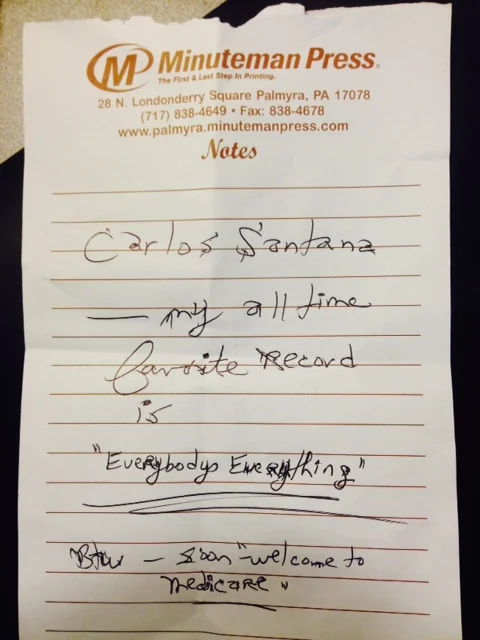 M Minuteman Press®
The First & Last Step In Printing.
28 N. Londonderry Square Palmyra, PA 17078
(717) 838-4649 • Fax: 838-4678
www.palmyra.minutemanpress.com
Notes
Carlos Santana
— my all time
favorite Record
is
"Everybodys Everything"
Btw — soon "welcome to
medicare"